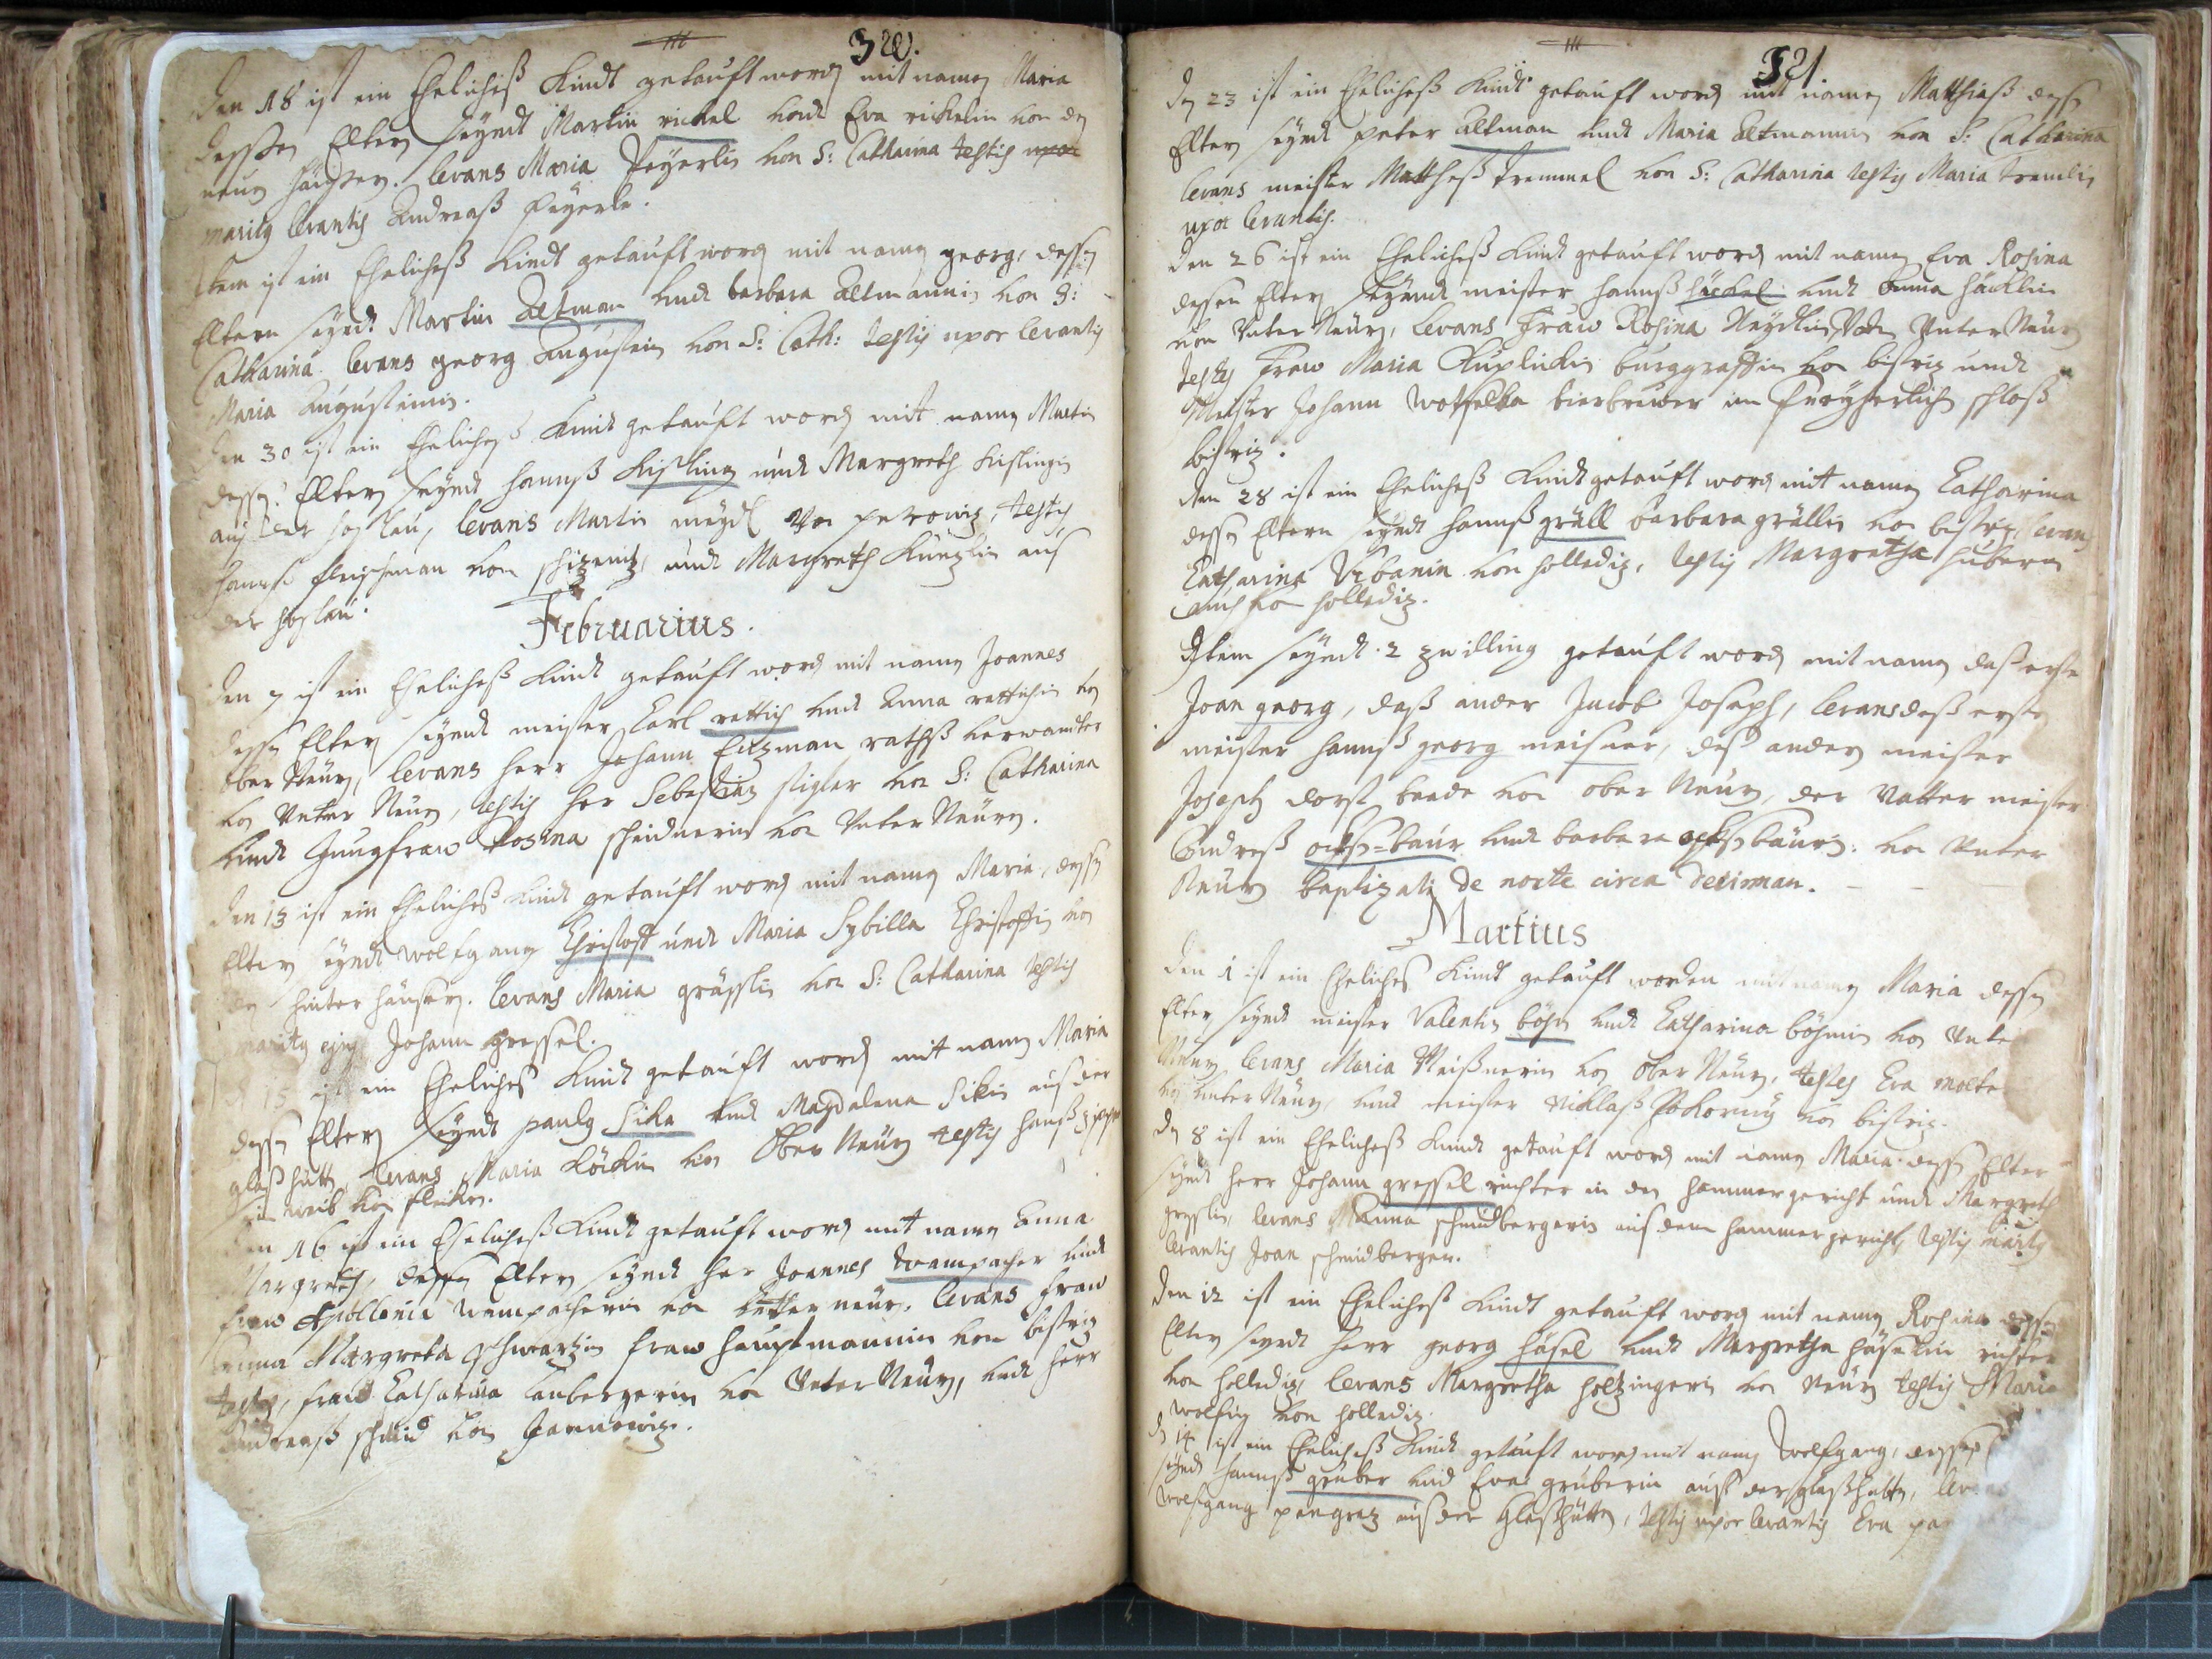 320.
Den 18 ist ein Ehelicheß Kindt getauft word mit namen Maria
dessen Eltern seyndt Martin rickel undt Eva rickelin von den
neun häusern. levans Maria Peyerlin von S: Catharina testis uxor
maritus levantis Andreaß Peyerle.
Item ist ein Ehelicheß Kindt getauft word mit namen georg, dessen
Eltern seyndt Martin Altman undt barbara Altmannin von S:
Catharina levans georg Augustein von S: Cath: testis uxor levantis
Maria Augusteinin.
Den 30 ist ein Ehelicheß Kindt getauft word mit namen Martin
dessen Eltern seyndt hannß Kißling undt Margreth Kislingin
auß der hoslau, levans Martin meydl von petrowiz, testis
hannß fleischman von und Margreth Künzlin auß
der hoslau.
Februarius.
Den 7 ist ein Ehelicheß Kindt getauft word mit namen Joannes
dessen Eltern seyndt meister Carl rettich undt Anna rettichin von
Ober Neurn, levans herr Johann Eitzman rathß verwandter
von Unter Neurn, testis her Sebastian stigler von S: Catharina
undt Jungfraw Rosina schneidnerin von Unter Neuern.
Den 13 ist ein Ehelicheß Kindt getauft word mit namen Maria, dessen
Eltern seyndt wolfgang Christoff undt Maria Sybilla Christoffin von
den hinter häusern. levans Maria grässlin von S: Catharina testis
maritus ejus Johann gressel.
15 ist ein Ehelicheß Kindt getauft word mit namen Maria
dessen Eltern seyndt paulus Sika undt Magdalena Sikin auß der
glaßhütten levans Maria Köckin von Ober Neurn testis hanß
sein weib von
Den 16 ist ein Ehelicheß Kindt getauft word mit namen Anna
Margreth, dessen Eltern seyndt her Joannes wampacher undt
fraw Apollonia wampacherin von Unter neurn. levans fraw
Anna Margreta Schwartzin fraw hauptmannin von bistriz
testes, fraw Catharina lanbergerin von Unter Neurn, undt herr
Andreaß schmid von Jannowiz.
321
Den 23 ist ein Ehelicheß Kindt getauft word mit namen Matthiaß dessen
Eltern seyndt peter Altman undt Maria Altmannin von S: Catharina
levans meister Mattheß tremmel von S: Catharina testis Maria tremlin
uxor levantis.
Den 26 ist ein Ehelicheß Kindt getauft word mit namen Eva Rosina
dessen Eltern seyndt meister hannß häckel undt Anna häcklin
von Unter Neurn, levans Fraw Rosina Neydlin von Unter Neurn
testes Fraw Maria burggraffin von bistriz undt
Meister Johann wotselka bierbrewer im freyherlichen schloß
bistriz.
Den 28 ist ein Ehelicheß Kindt getauft word mit namen Catharina
dessen Eltern seyndt hannß gräll barbara grällin von bistriz, levans
Catharina Urbanin von holledig, testis Margretha huberin
auch von holledig.
Item seyndt 2 zwilling getauft word mit namen daß erste
Joan georg, daß ander Jacob Joseph, levans deß ersten
meister hannß georg meisner, deß andern meister
Joseph dorst beede von ober Neurn, der Vatter meister
Andreß ochß-baur undt barbara ochßbäurin von Unter
Neurn baptizati de nocte circa decimam.
Martius
Den 1 ist ein Ehelicheß Kindt getauft worden mit namen Maria dessen
Eltern seyndt meister Valentin böhm undt Catharina böhmin von Unter
Neurn levans Maria Meißnerin von Ober Neurn, testes Eva
von Unter Neurn, undt meister Niklaß Pokorny von bistriz.
Den 8 ist ein Ehelicheß Kindt getauft word mit namen Maria dessen Eltern
seyndt herr Johann gressel richter in den hammer gericht undt Margreth
gresslin, levans Anna schmidbergerin auß dem hammergericht, testis maritus
levantis Joan schmidberger.
Den 12 ist ein Ehelicheß Kindt getauft word mit namen Rosina dessen
Eltern seyndt herr georg häsel undt Margretha häselin richter
von holledig, levans Margretha holtzingerin von Neurn testis Maria
wolfin von holledig.
Den 14 ist ein Ehelicheß Kindt getauft word mit namen Wolfgang, dessen
seyndt hannß gruber undt Eva gruberin auß der glaßhütten, levans
wolfgang pangraz auß der glaßhütten, testis uxor levantis Eva